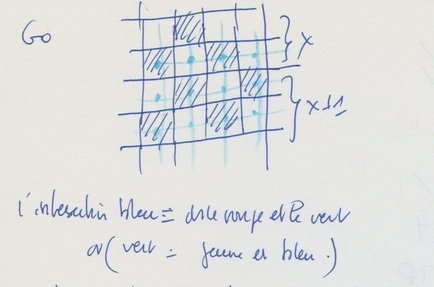 Go
x
x 11
l'intersection bleu = dr le rouge et le vert
or (vert = jaune et bleu.)